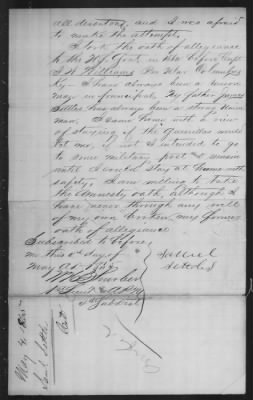 all directions, and I was afraid
to make the attempt.
I took the oath of allegiance
to the U.S. Govt. in 186 before Capt
J H Williams Pro Mar Columbia
Ky - I have always been a union
man in principal. My father James
Settles has always been a strong Union
man. I came home with a view
of staying if the guerrillas would
let me, if not I intended to go
to some military post & remain
until I could stay at home with
safety. I am willing to take
the amnesty oath, although I
have never through any will
of my own broken my former
oath of allegiance
Subscribed to before
me this 4th day of
May AD 1865
1st Lieut & APM
Samuel
Settles
May 4 1865
Saml Settle